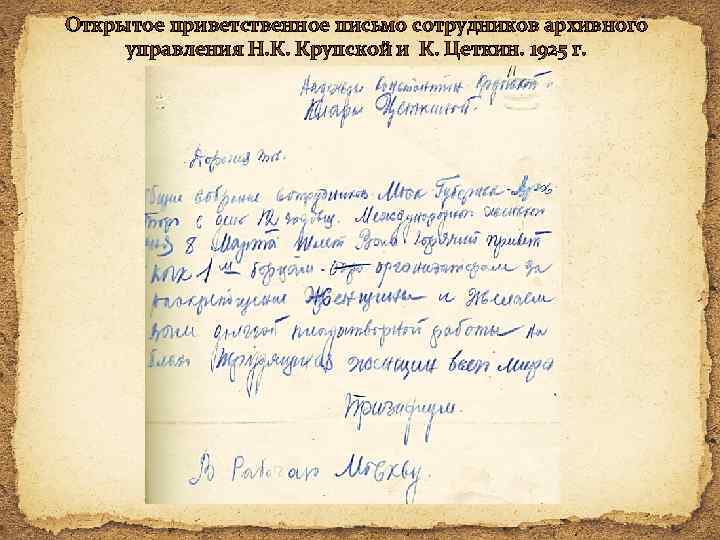 Открытое приветственное письмо сотрудников архивного
управления Н. К. Крупской и К. Цеткин. 1925 г.
Надежды Константин. Крупской.
Клары Цеткиной.
Дорогия тов.
Общие собрание сотрудников Моск Губернск
с день 12 годовщ. Международног
8 Марта Шлет Вам горячий привет
1ым борцам организаторам за
раскрепощение Женщины и Желаем
долгой плодотворной работы на
благо Трудящихся женщин всего мира
Призидиум.
В Рабочаю Москву.